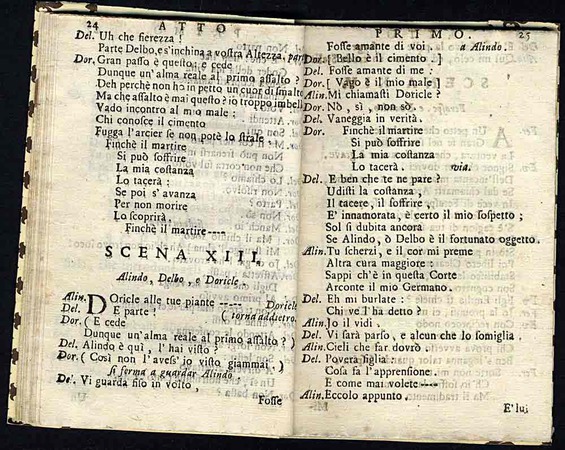 24 ATTO
Del. Uh che fierezza!
Parte Delbo, es'inchina a vostra Altezza. parte
Dor. Gran passo è questo: e cede
Dunque un'alma reale al primo assalto?
Deh perchè non hò in petto un cuor di smalto
Ma che assalto è mai questo? è io troppo imbelle
Vado incontro al mio male:
Chi conosce il cimento
Fugga l'arcier se non potè lo strale,
Finchè il martire
Si può soffrire
La mia costanza
Lo tacerà:
Se poi s'avanza
Per non morire
Lo scoprirà.
Finchè il martire----
SCENA XIII.
Alindo, Delbo, e Doricle.
Alin. Doricle alle tue piante ----- Doricle
Del. E parte! (torna addietro.
Dor. (E cede
Dunque un'alma reale al primo assalto?)
Del. Alindo è quì, l'hai visto?
Dor. (Così non l'avess'io visto giammai)
si ferma a guardar Alindo
De'. Vi guarda fiso in volto,
Fosse
PRIMO. 25
Fosse amante di voi. a Alindo.
Dor. [Bello è il cimento.]
Del. Fosse amante di me:
Dor. [Vago è il mio male]
Alin. Mi chiamasti Doricle?
Dor. Nò, sì, non sò.
Del. Vaneggia in verità.
Dor. Finchè il martire
Si può soffrire
La mia costanza
Lo tacerà. via.
Del. E ben che te ne pare?
Udisti la costanza,
Il tacere, il soffrire,
E' innamorata, è certo il mio sospetto;
Sol si dubita ancora
Se Alindo, ò Delbo è il fortunato oggetto.
Alin. Tu scherzi, e il cor mi preme
Altra cura maggiore:
Sappi ch'è in questa Corte
Arconte il mio Germano.
Del. Eh mi burlate:
Chi ve l'ha detto?
Alin. Jo il vidi.
Del. Vi sarà parso, e alcun che lo somiglia.
Alin. Cieli che far dovrò
Del. Povera figlia:
Cosa fa l'apprensione.
E come mai volete----
Alin. Eccolo appunto.
E' lui